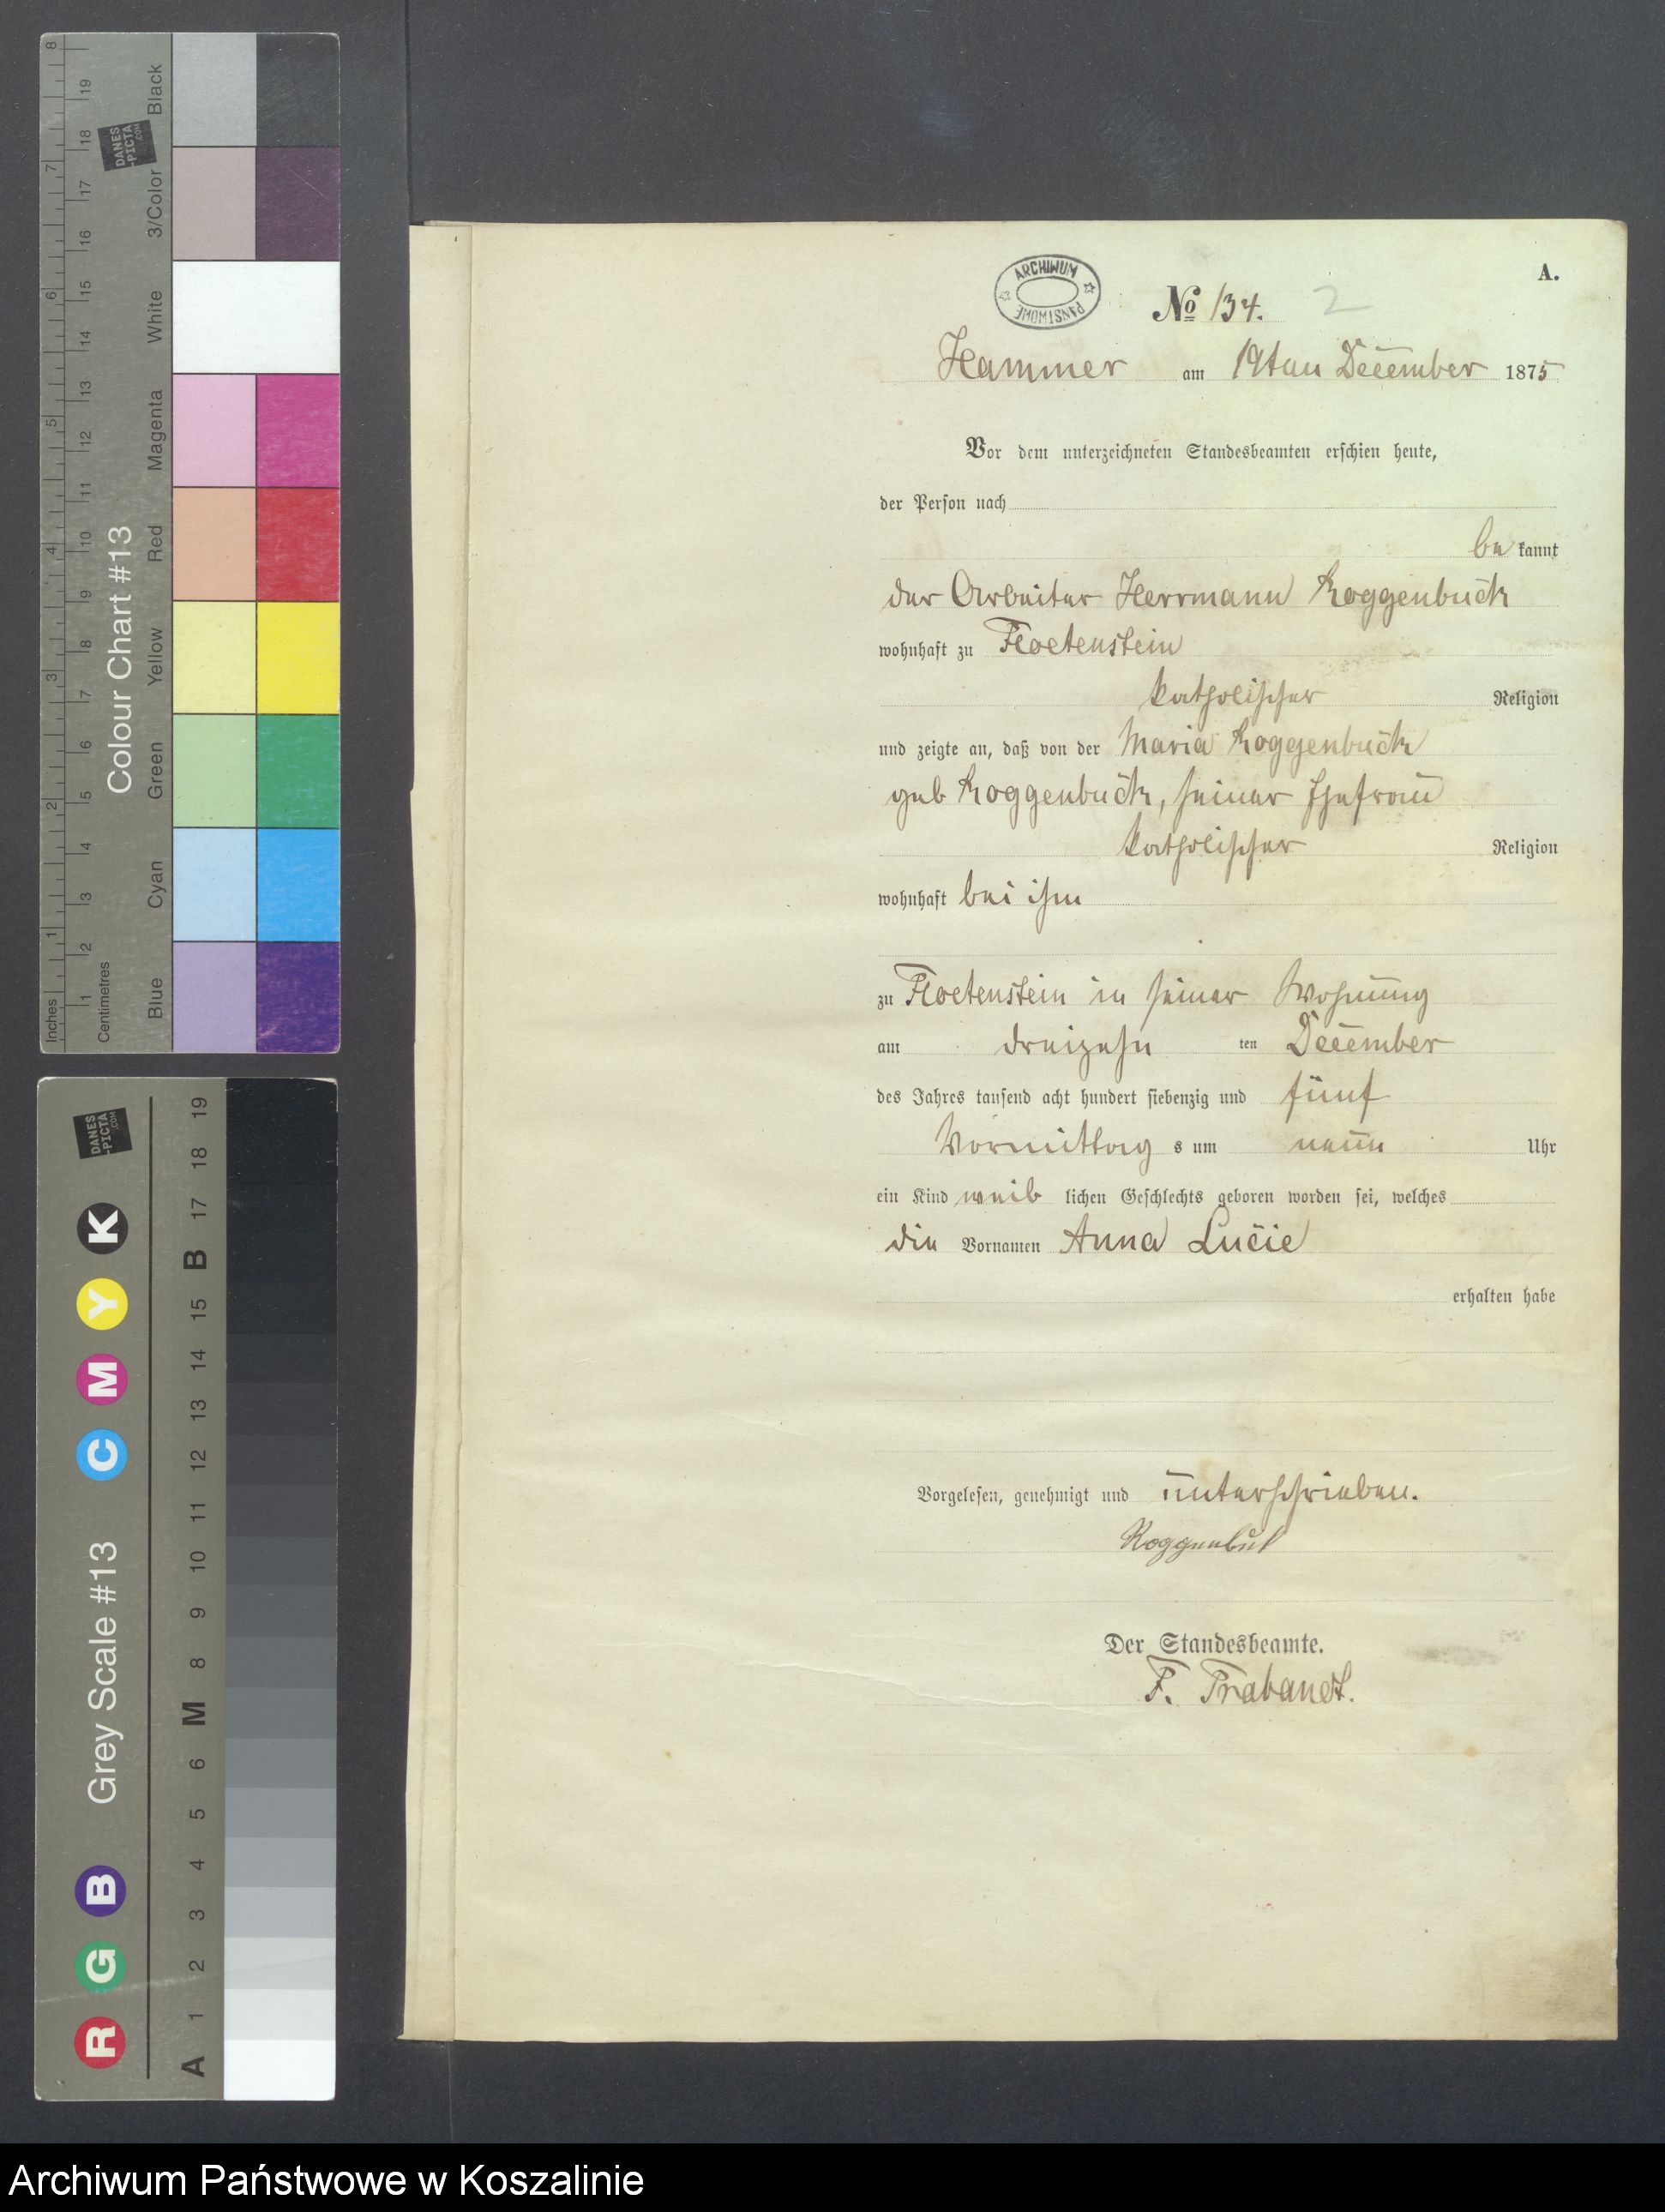 8
7
6
5
4
3
2
1
Inches
19
18
17
16
15
14
13
12
11
10
9
8
7
6
5
4
3
2
1
Centimetres
DANES
-PICTA
.COM
Colour Chart #13
Black
3/Color
White
Magenta
Red
Yellow
Green
Cyan
Blue
DANES
-PICTA
.COM
R G B Grey Scale #13 C M Y K
A 1 2 3 4 5 6 M 8 9 10 11 12 13 14 15 B 17 18 19
A.
ARCHIWUM
PAŃSTWOWE
№ 134.
2
Hammer am 19ten December 1875
Vor dem unterzeichneten Standesbeamten erschien heute,
der Person nach
be kannt
der Arbeiter Herrmann Roggenbuck
wohnhaft zu Floetenstein
katholischer Religion
und zeigte an, daß von der Maria Roggenbuck
geb Roggenbuck, seiner Ehefrau
katholischer Religion
wohnhaft bei ihm
zu Floetenstein in seiner Wohnung
am dreizehn ten December
des Jahres tausend acht hundert siebenzig und fünf
Vormittag s um neun Uhr
ein Kind weib lichen Geschlechts geboren worden sei, welches
die Vornamen Anna Lucie
erhalten habe
Vorgelesen, genehmigt und unterschrieben.
Der Standesbeamte.
F. Trabandt.
Archiwum Państwowe w Koszalinie